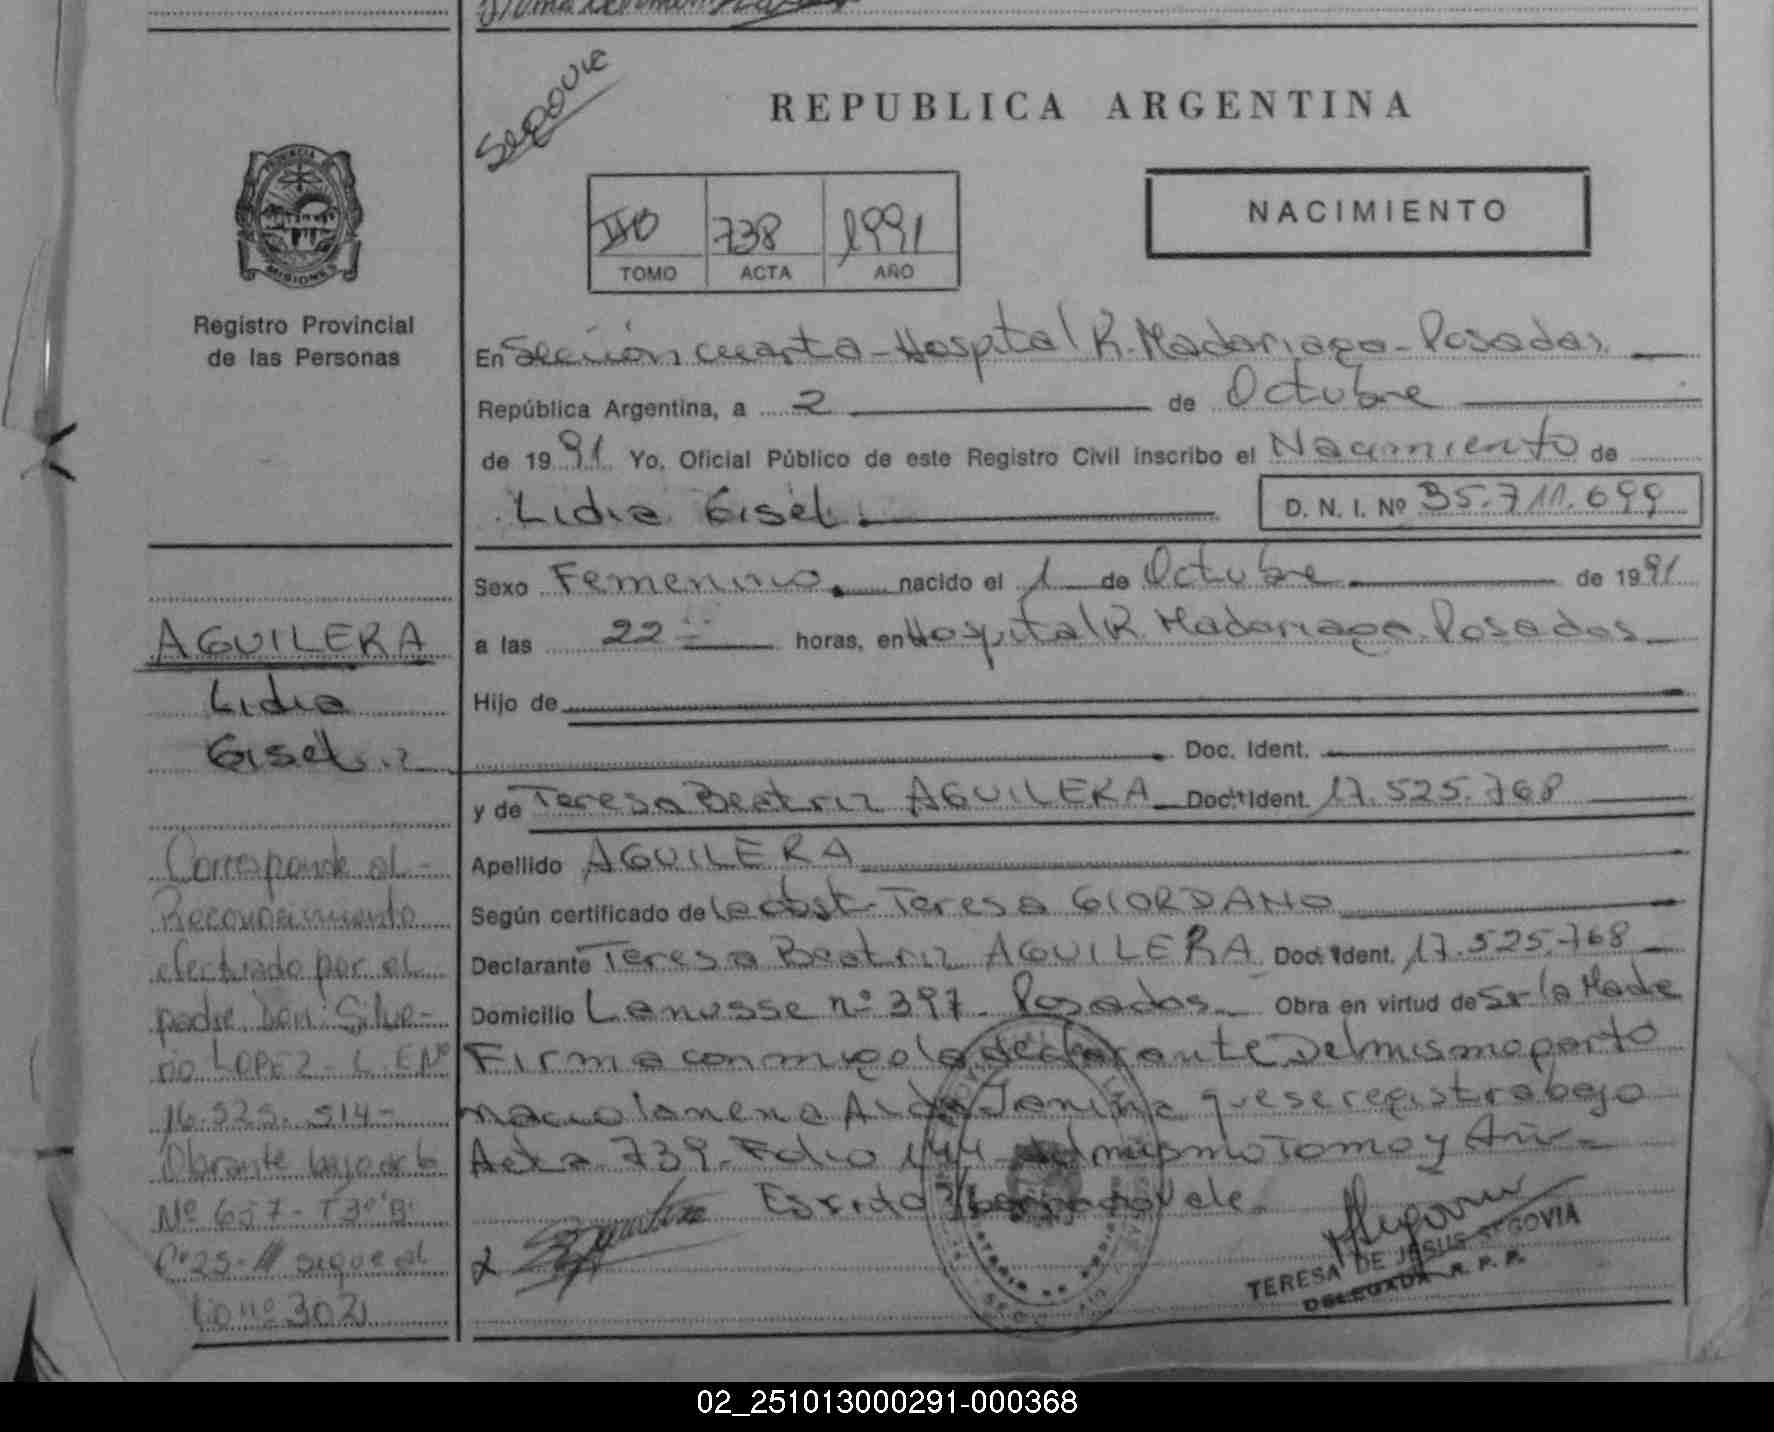 Segovia
REPUBLICA ARGENTINA
NACIMIENTO
738 1991
TOMO ACTA AÑO
PROVINCIA DE
MISIONES
Registro Provincial
de las Personas
En Sección cuarta - Hospital R. Madariaga - Posadas
República Argentina, a 2 de Octubre
de 1991 Yo, Oficial Público de este Registro Civil inscribo el Nacimiento de
Lidia Gisel. D. N. I. Nº 35.711.699
Sexo Femenino. nacido el 1 de Octubre de 1991
a las 22 horas, en Hospital R. Madariaga Posadas
Hijo de
Doc. Ident.
y de Teresa Beatriz AGUILERA Doc. Ident. 17.525.768
Apellido AGUILERA
Según certificado de la obst. Teresa GIORDANO
Declarante Teresa Beatriz AGUILERA Doc. Ident. 17.525.768
Domicilio Lanusse nº 397 - Posadas Obra en virtud de Ser la Madre
Firma conmigo la declarante Del mismo parto
nacio la nena Aida Janina que se registra bajo
Acta 739 - Folio 144 del mismo Tomo y Año -
Vale.
TERESA DE JESUS SEGOVIA
DELEGADA R. P. P.
AGUILERA
Lidia
Gisel
Corresponde al -
Reconocimiento
efectuado por el
padre Don Silve-
rio LOPEZ - L. E Nº
16.525.514 -
Obrante bajo acta
Nº 657 - T3º B.
Fº 25 - sigue al
folio nº 302
02_251013000291-000368